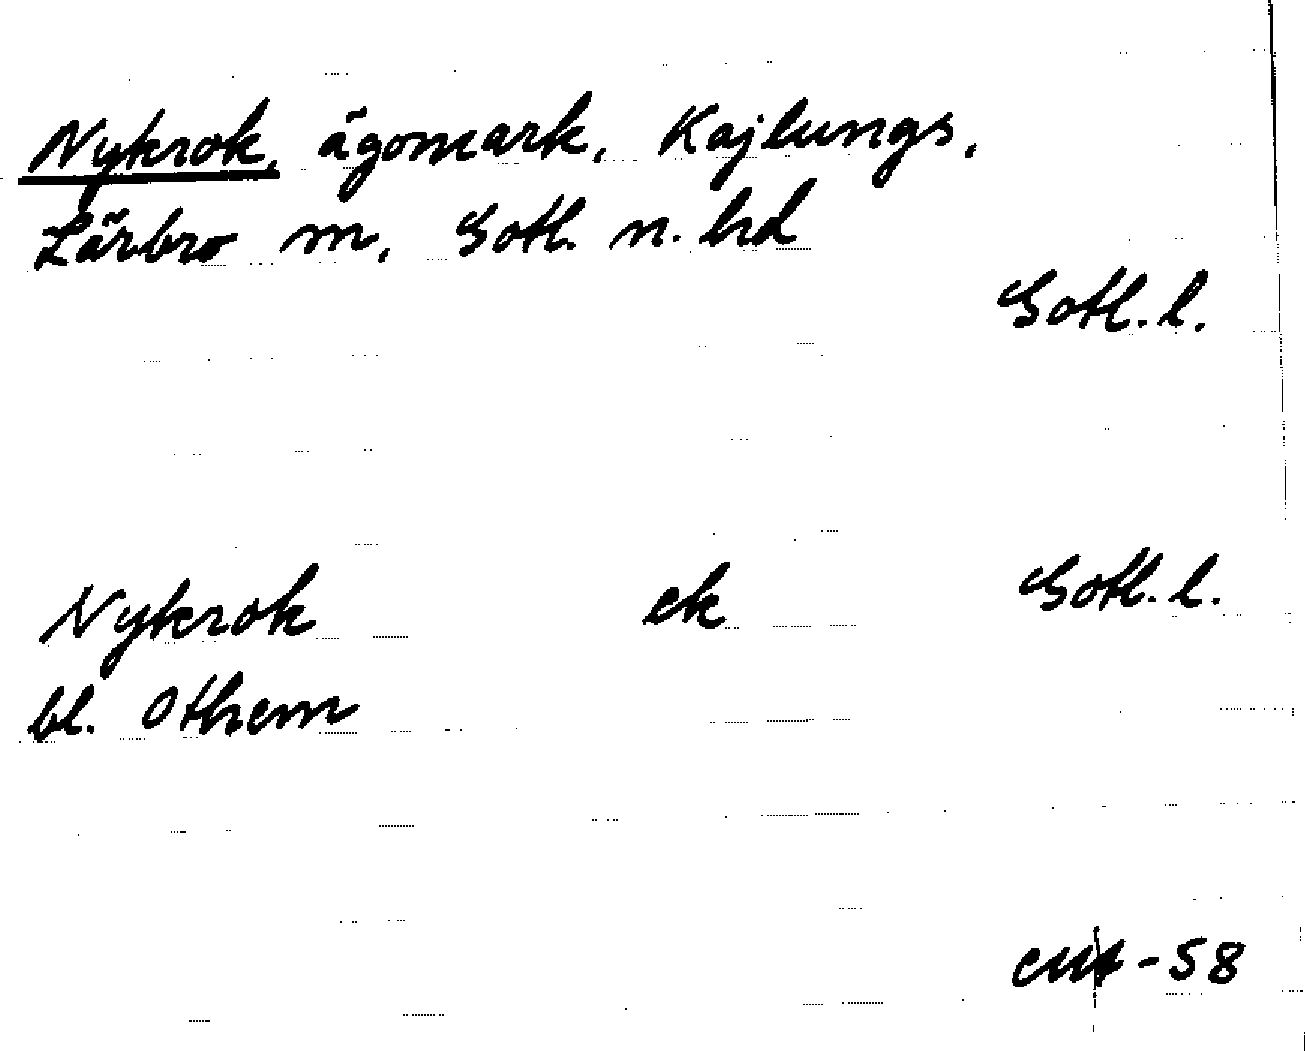 Nykrok, ägomark, Kajlungs,
Lärbro m, Gotl. n. hd
Gotl. l.
Nykrok ek Gotl. l.
bl. Othem
-58